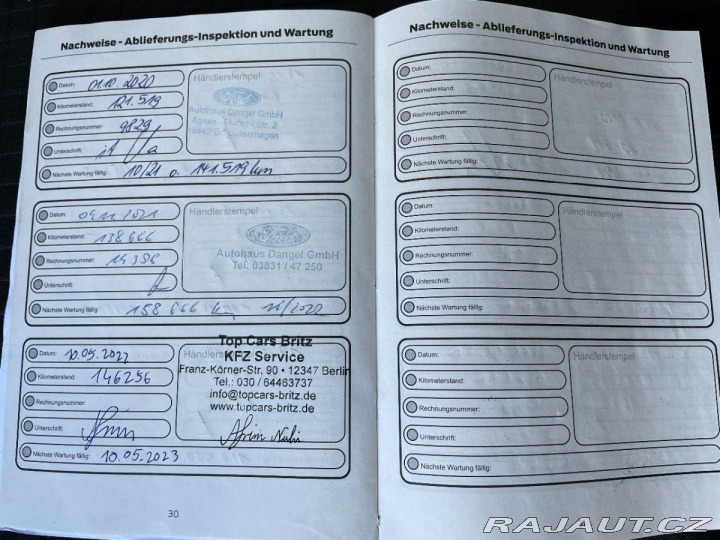 Nachweise - Ablieferungs-Inspektion und Wartung
Datum: 01.10.2020
Händlerstempel
Kilometerstand: 121.519
Autohaus Dangel GmbH
Rechnungsnummer: 9829
Unterschrift:
Nächste Wartung fällig: 10/21 o. 141.519 km
Datum:
Händlerstempel
Kilometerstand: 138666
Autohaus Dangel GmbH
Tel. 03831 / 47 250
Rechnungsnummer:
Unterschrift:
Nächste Wartung fällig: 158 666 km
Top Cars Britz
Datum: 10.05.2022
KFZ Service
Kilometerstand: 146256
Franz-Körner-Str, 90 • 12347 Berlin
Tel.: 030 / 64463737
info@topcars-britz.de
Rechnungsnummer:
www.topcars-britz.de
Unterschrift:
Nächste Wartung fällig: 10.05.2023
30
Nachweise - Ablieferungs-Inspektion und Wartung
Datum:
Händlerstempel
Kilometerstand:
Rechnungsnummer:
Unterschrift:
Nächste Wartung fällig:
Datum:
Händlerstempel
Kilometerstand:
Rechnungsnummer:
Unterschrift:
Nächste Wartung fällig:
Datum:
Händlerstempel
Kilometerstand:
Rechnungsnummer:
Unterschrift:
Nächste Wartung fällig:
RAJAUT.CZ